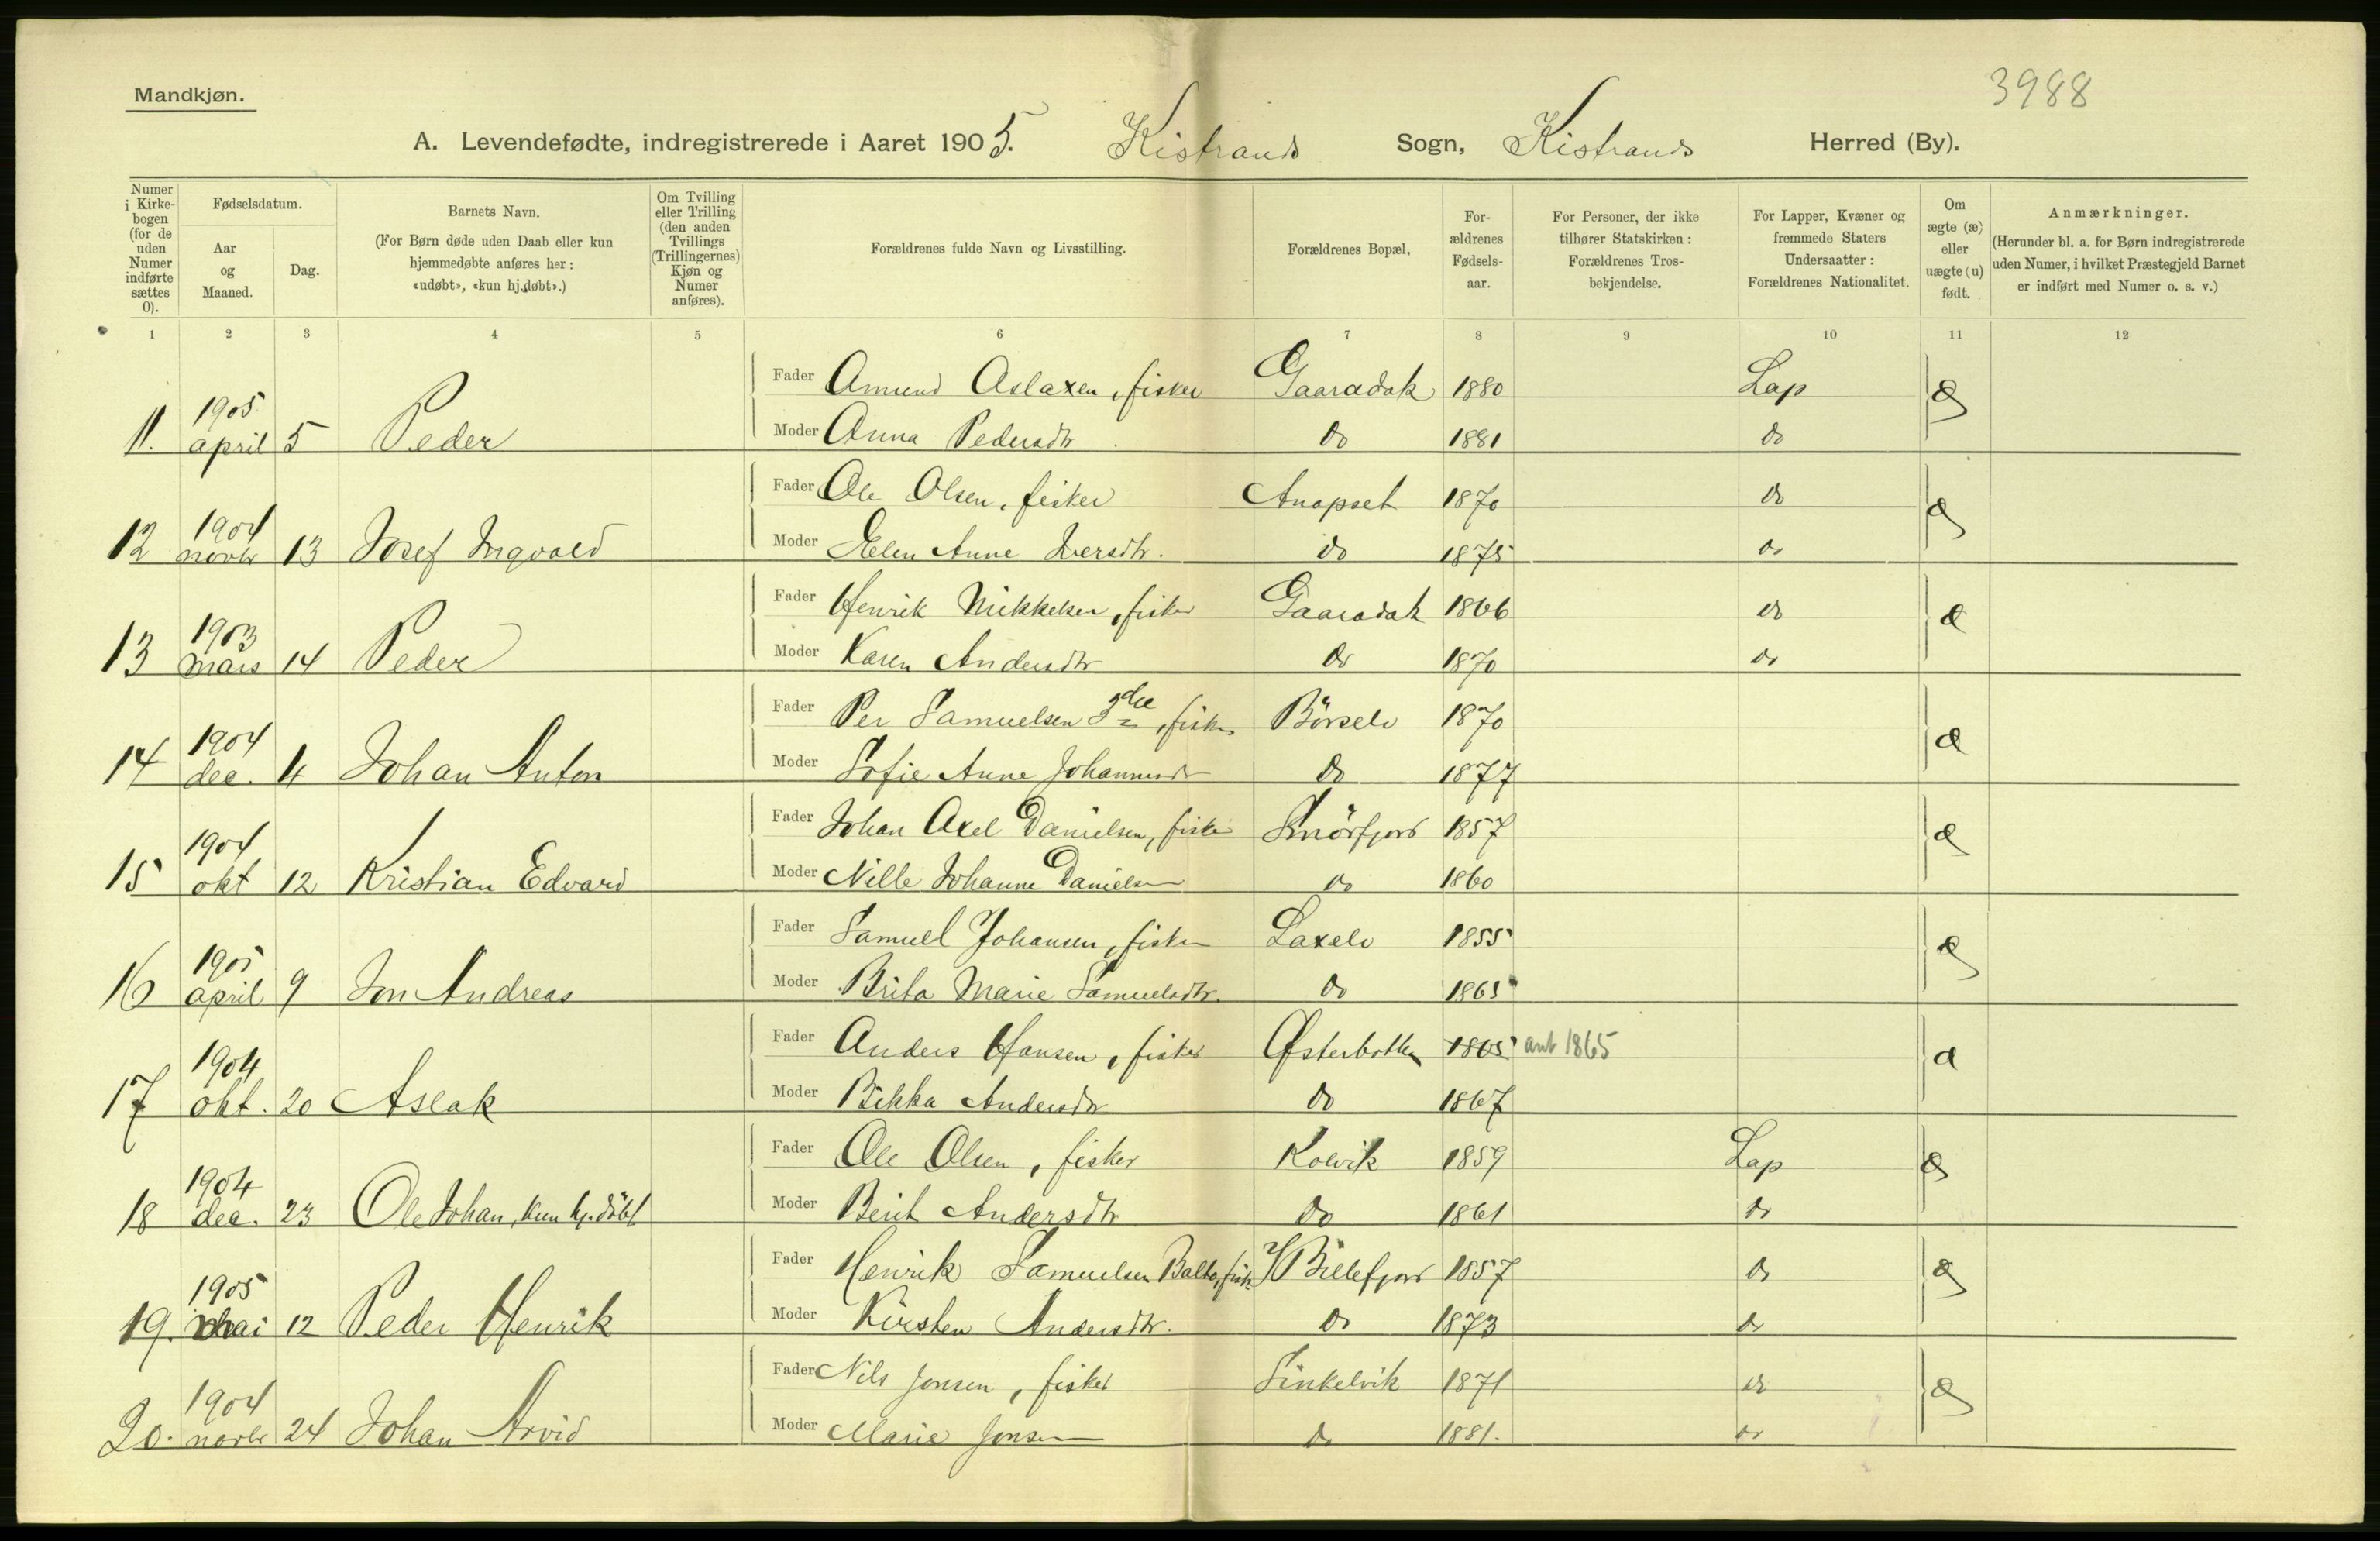 3988
Mandkjøn.
A. Levendefødte, indregistrerede i Aaret 1905. Kistrands Sogn, Kistrands Herred (By).
Numer i Kirkebogen (for de uden Numer indførte sættes 0).
Fødselsdatum.
Aar og Maaned.
Dag.
Barnets Navn.
(For Børn døde uden Daab eller kun hjemmedøbte anføres her: «udøbt», «kun hj.døbt».)
Om Tvilling eller Trilling (den anden Tvillings (Trillingernes) Kjøn og Numer anføres).
Forældrenes fulde Navn og Livsstilling.
Forældrenes Bopæl.
Forældrenes Fødselsaar.
For Personer, der ikke tilhører Statskirken: Forældrenes Trosbekjendelse.
For Lapper, Kvæner og fremmede Staters Undersaatter: Forældrenes Nationalitet.
Om ægte (æ) eller uægte (u) født.
Anmærkninger.
(Herunder bl. a. for Børn indregistrerede uden Numer, i hvilket Præstegjeld Barnet er indført med Numer o. s. v.)
1 2 3 4 5 6 7 8 9 10 11 12
Fader Amund Aslaxen, fisker Gaaradak 1880 Lap æ
11. 1905 april 5 Peder Moder Anna Pedersdtr do 1881 do
Fader Ole Olsen, fisker Anopset 1870 do æ
12 1904 novbr 13 Josef Ingvald Moder Elen Anne Iversdtr. do 1875 do
Fader Henrik Mikkelsen, fisker Gaaradak 1866 do æ
13 1903 mars 14 Peder Moder Karen Andersdtr do 1870 do
Fader Per Samuelsen 3die, fisker Börselv 1870 æ
14 1904 dec. 4 Johan Anton Moder Sofie Anne Johannesdr do 1877
Fader Johan Axel Danielsen, fisker Smörfjord 1857 æ
15 1904 okt 12 Kristian Edvard Moder Nille Johanne Danielsen do 1860
Fader Samuel Johansen, fisker Laxelv 1855 æ
16 1905 april 9 Jon Andreas Moder Brita Marie Samuelsdtr. do 1865
Fader Anders Hansen, fisker Østerbotten 1865 ant 1865 æ
17 1904 okt. 20 Aslak Moder Bikka Andersdr do 1867
Fader Ole Olsen, fisker Kolvik 1859 Lap æ
18 1904 dec. 23 Ole Johan, kun hj.döbt Moder Berit Andersdtr do 1861 do
Fader Henrik Samuelsen Balto, fisk Y/Billefjord 1857 do æ
19. 1905 mai 12 Peder Henrik Moder Kirsten Andersdtr. do 1873 do
Fader Nils Jonsen, fisker Sinkelvik 1871 do æ
20. 1904 novbr 24 Johan Arvid Moder Marie Jonsen do 1881. do